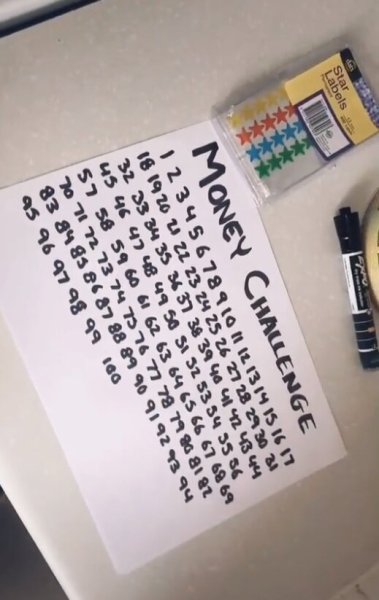 MONEY CHALLENGE
1 2 3 4 5 6 7 8 9 10 11 12 13 14 15 16 17
18 19 20 21 22 23 24 25 26 27 28 29 30 31
32 33 34 35 36 37 38 39 40 41 42 43 44
45 46 47 48 49 50 51 52 53 54 55 56
57 58 59 60 61 62 63 64 65 66 67 68 69
70 71 72 73 74 75 76 77 78 79 80 81 82
83 84 85 86 87 88 89 90 91 92 93 94
95 96 97 98 99 100
Star
Labels
Permanent
EXPO